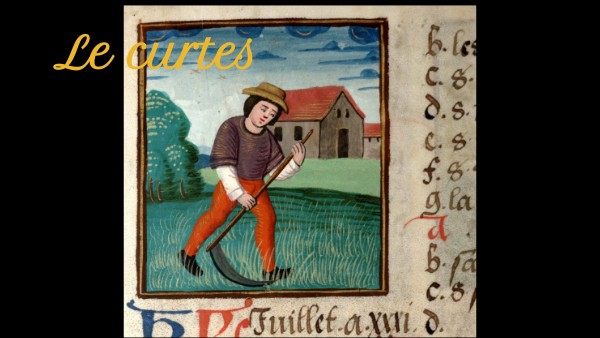 Le curtes
b. les
c. s.
d. s.
e. s
f. s.
g. la
A
b. sa
c. s
Juillet. a. xxxi. d.